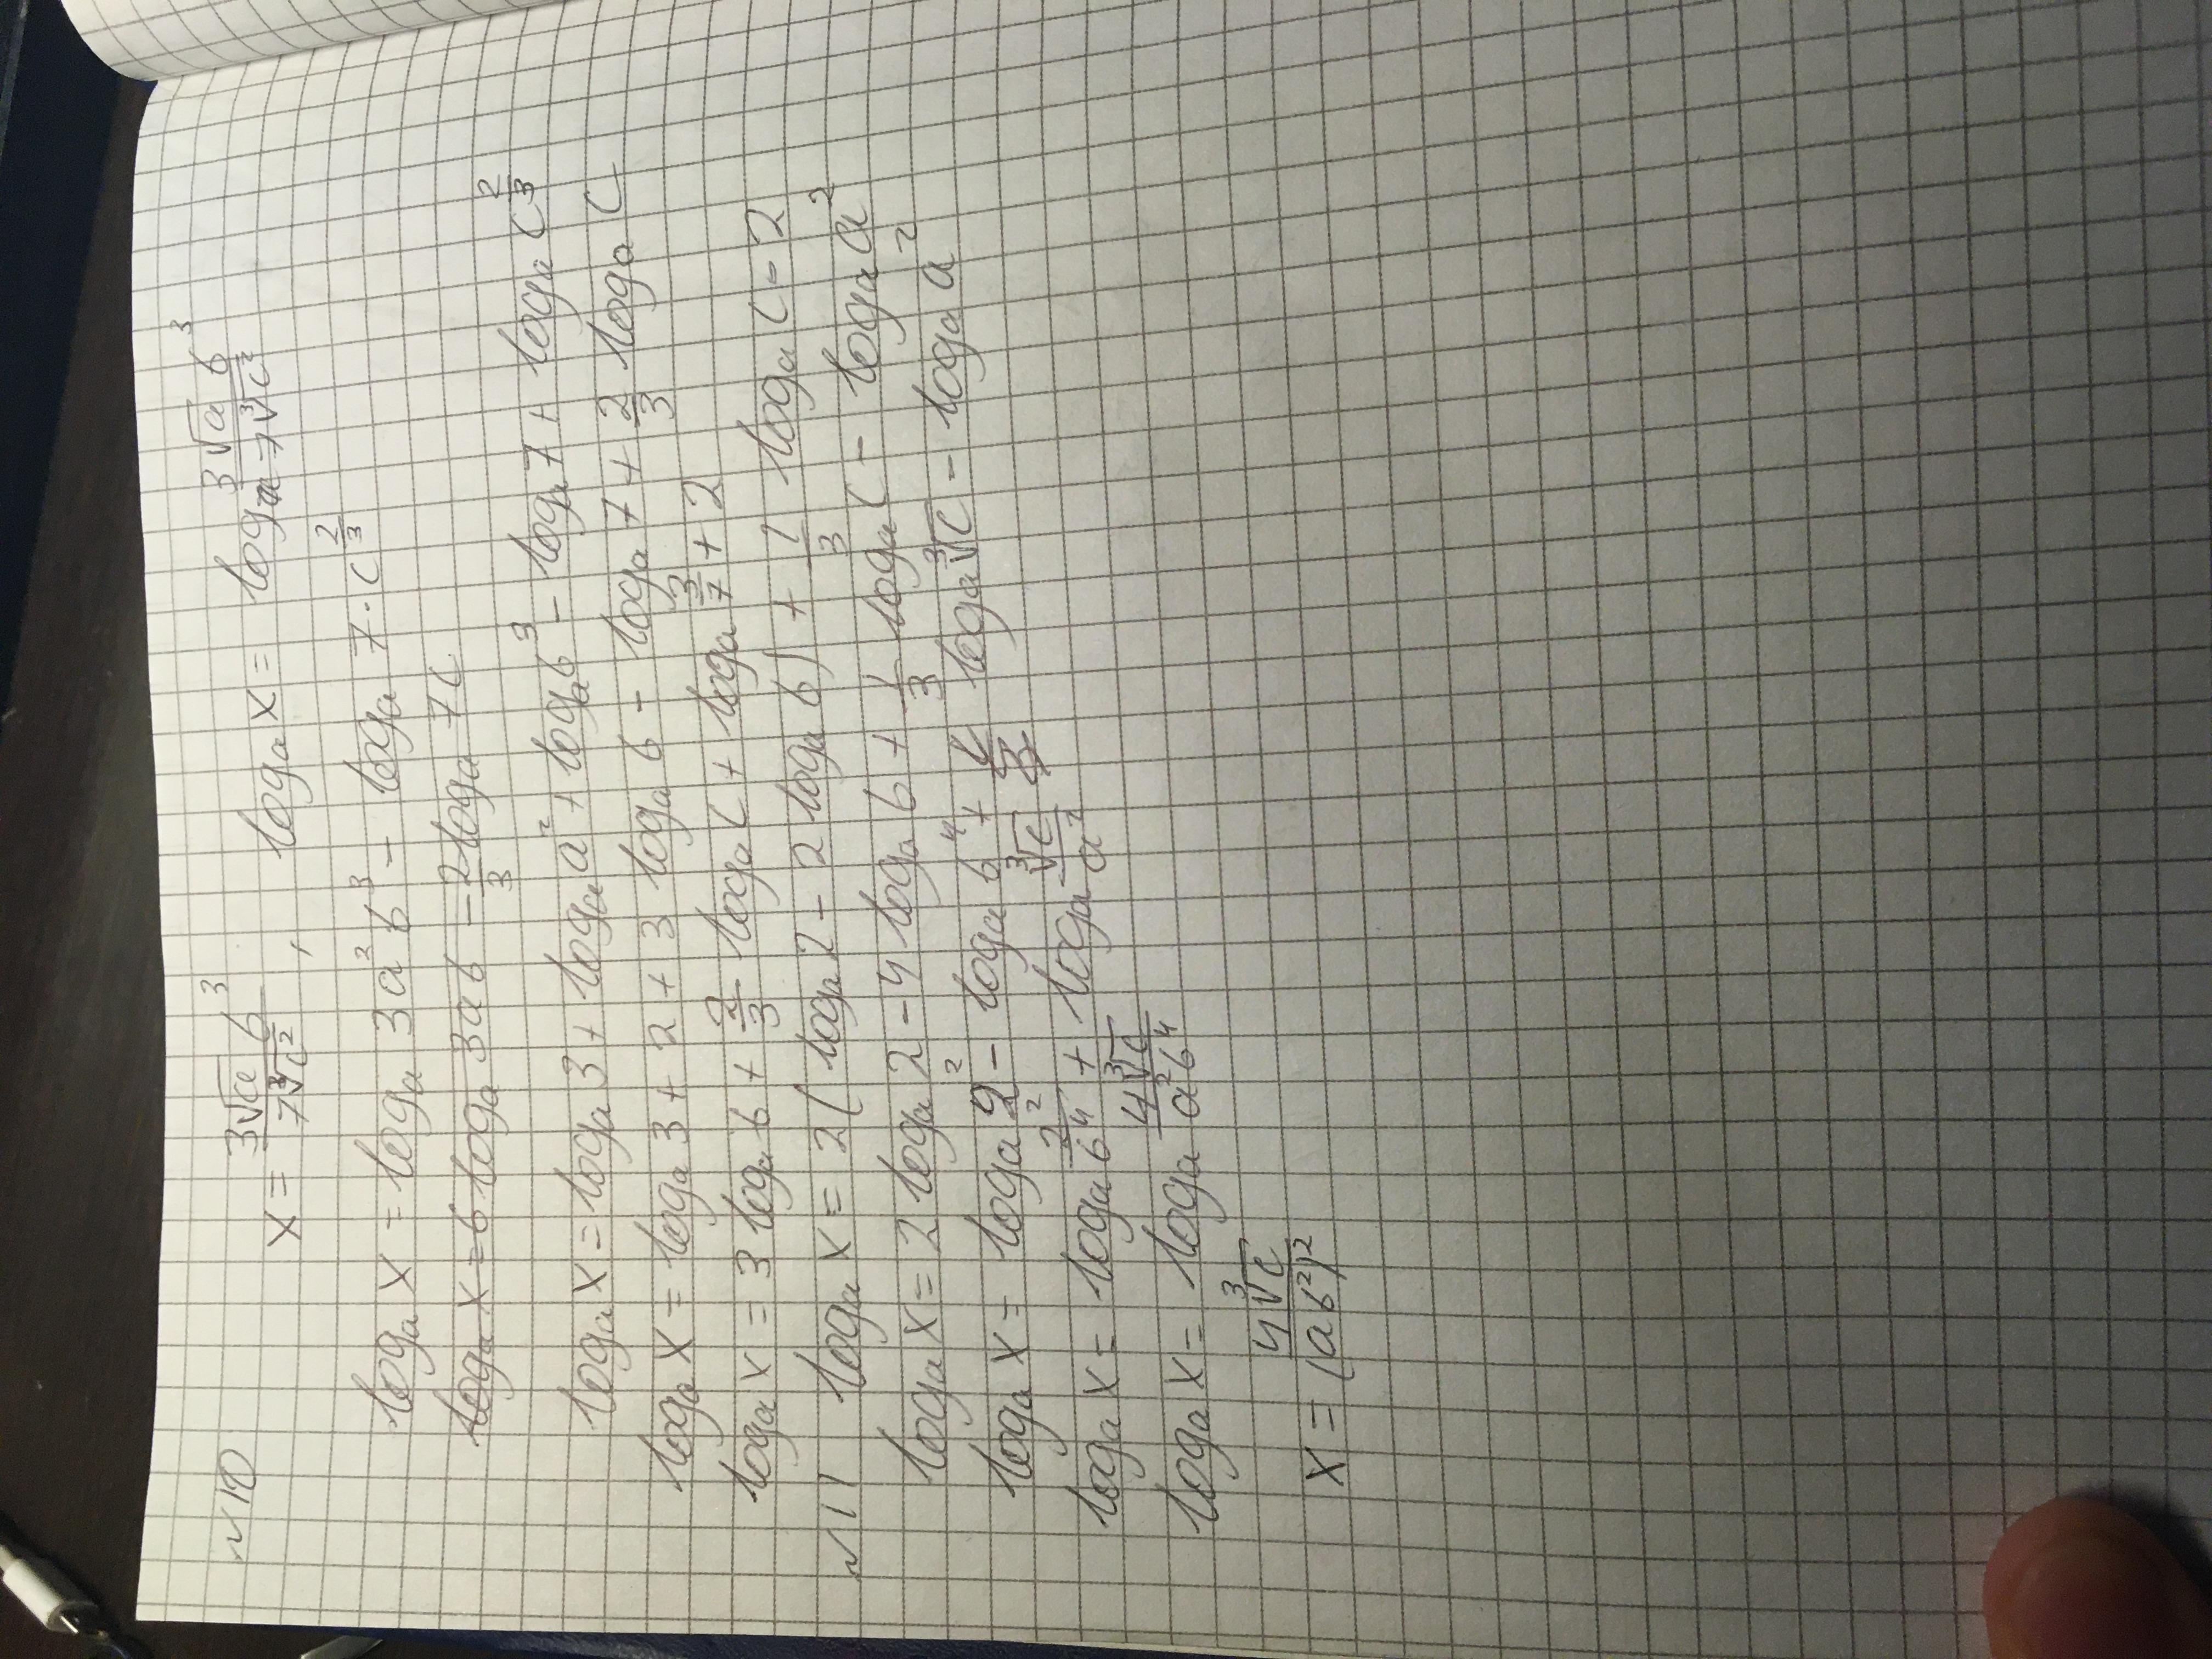 №10 x = 3√a b³ / 7∛c² , logₐ x = logₐ 3√a b³ / 7∛c²
logₐ x = logₐ 3a² b³ - logₐ 7 · c^(2/3)
logₐ x = 6 logₐ 3ab - 2/3 logₐ 7c
logₐ x = logₐ 3 + logₐ a² + logₐ b³ - logₐ 7 + logₐ c^(2/3)
logₐ x = logₐ 3 + 2 + 3 logₐ b - logₐ 7 + 2/3 logₐ c
logₐ x = 3 logₐ b + 2/3 logₐ c + logₐ 3/7 + 2
№11 logₐ x = 2(logₐ 2 - 2 logₐ b) + 1/3 logₐ c - 2
logₐ x = 2 logₐ 2 - 4 logₐ b + 1/3 logₐ c - logₐ a²
logₐ x = logₐ 2² - logₐ b⁴ + logₐ ∛c - logₐ a²
logₐ x = logₐ 2²/b⁴ + logₐ ∛c/a²
logₐ x = logₐ 4∛c / a²b⁴
x = 4∛c / (ab²)²